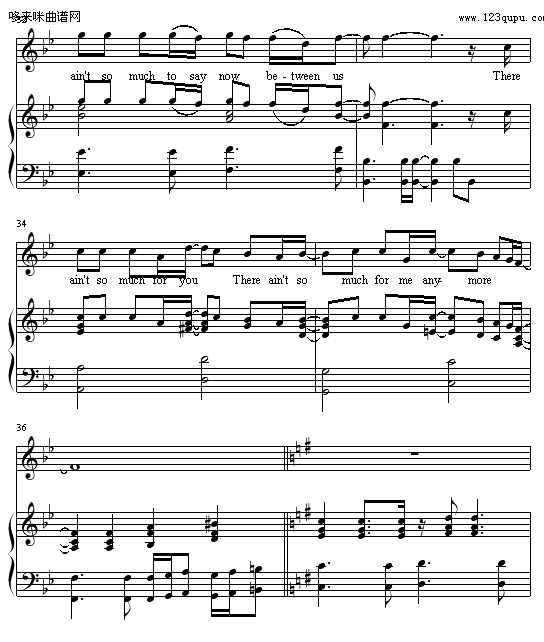 哆来咪曲谱网
www.123qupu.com
ain't so much to say now be - tween us There
34
ain't so much for you There ain't so much for me any- more
36